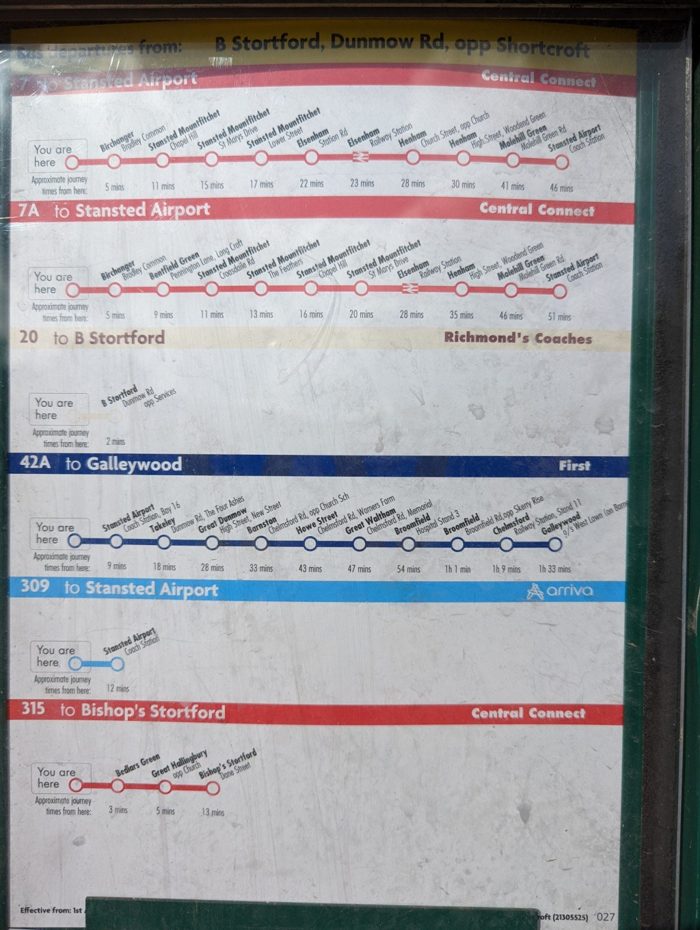 Bus departures from: B Stortford, Dunmow Rd, opp Shortcroft
7 to Stansted Airport Central Connect
You are here
Birchanger Bradley Common
Stansted Mountfitchet Chapel Hill
Stansted Mountfitchet St Marys Drive
Stansted Mountfitchet Lower Street
Elsenham Station Rd
Elsenham Railway Station
Henham Church Street, opp Church
Henham High Street, Woodend Green
Molehill Green Molehill Green Rd
Stansted Airport Coach Station
Approximate journey times from here: 5 mins 11 mins 15 mins 17 mins 22 mins 23 mins 28 mins 30 mins 41 mins 46 mins
7A to Stansted Airport Central Connect
You are here
Birchanger Bradley Common
Bentfield Green Pennington Lane, Long Croft
Stansted Mountfitchet Croasdaile Rd
Stansted Mountfitchet The Feathers
Stansted Mountfitchet Chapel Hill
Stansted Mountfitchet St Marys Drive
Elsenham Railway Station
Henham High Street, Woodend Green
Molehill Green Molehill Green Rd
Stansted Airport Coach Station
Approximate journey times from here: 5 mins 9 mins 11 mins 13 mins 16 mins 20 mins 28 mins 35 mins 46 mins 51 mins
20 to B Stortford Richmond's Coaches
You are here
B Stortford Dunmow Rd opp Services
Approximate journey times from here: 2 mins
42A to Galleywood First
You are here
Stansted Airport Coach Station, Bay 16
Takeley Dunmow Rd, The Four Ashes
Great Dunmow High Street, New Street
Barnston Chelmsford Rd, opp Church Sch
Howe Street Chelmsford Rd, Warners Farm
Great Waltham Chelmsford Rd, Memorial
Broomfield Hospital Stand 3
Broomfield Broomfield Rd, opp Skerry Rise
Chelmsford Railway Station, Stand 11
Galleywood o/s West Lawn (on Barn
Approximate journey times from here: 9 mins 18 mins 28 mins 33 mins 43 mins 47 mins 54 mins 1h 1 min 1h 9 mins 1h 33 mins
309 to Stansted Airport arriva
You are here
Stansted Airport Coach Station
Approximate journey times from here: 12 mins
315 to Bishop's Stortford Central Connect
You are here
Bedlars Green
Great Hallingbury opp Church
Bishop's Stortford Dane Street
Approximate journey times from here: 3 mins 5 mins 13 mins
Effective from: 1st
croft (21305525) 027